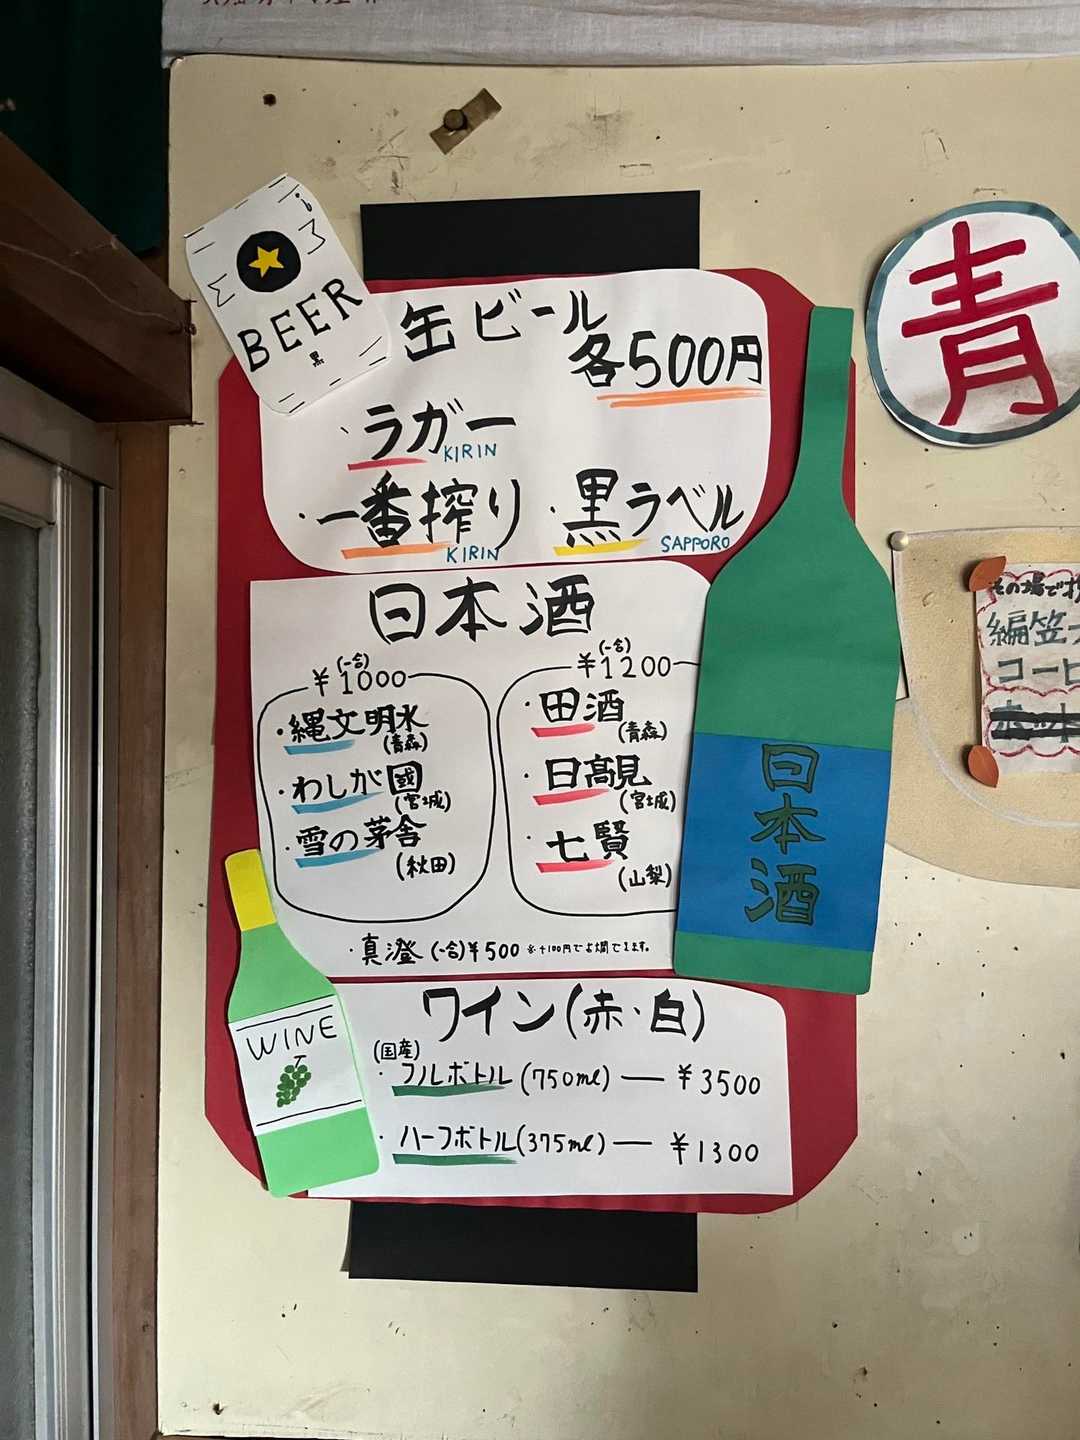 BEER
黒
缶ビール
各500円
・ラガー
KIRIN
・一番搾り
KIRIN
・黒ラベル
SAPPORO
日本酒
(一合)
¥1000
・縄文明水
(青森)
・わしが國
(宮城)
・雪の茅舎
(秋田)
(一合)
¥1200
・田酒
(青森)
・日高見
(宮城)
・七賢
(山梨)
・真澄 (一合)¥500 ※+100円でお燗できます。
日本酒
WINE
ワイン(赤・白)
(国産)
・フルボトル(750ml) ― ¥3500
・ハーフボトル(375ml) ― ¥1300
青
その場で
編笠
コーヒ